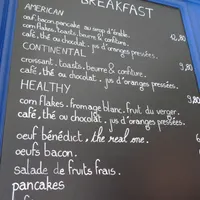 BREAKFAST
AMERICAN
oeuf bacon, pancake au sirop d'érable.
corn flakes, toasts, beurre & confiture.
café, thé ou chocolat. jus d'oranges pressées.
CONTINENTAL
croissant, toasts, beurre & confiture.
café, thé ou chocolat. jus d'oranges pressées.
HEALTHY
corn flakes, fromage blanc, fruit du verger.
café, thé ou chocolat, jus d'oranges pressées.
oeuf bénédict, the real me.
oeufs bacon.
salade de fruits frais.
pancakes